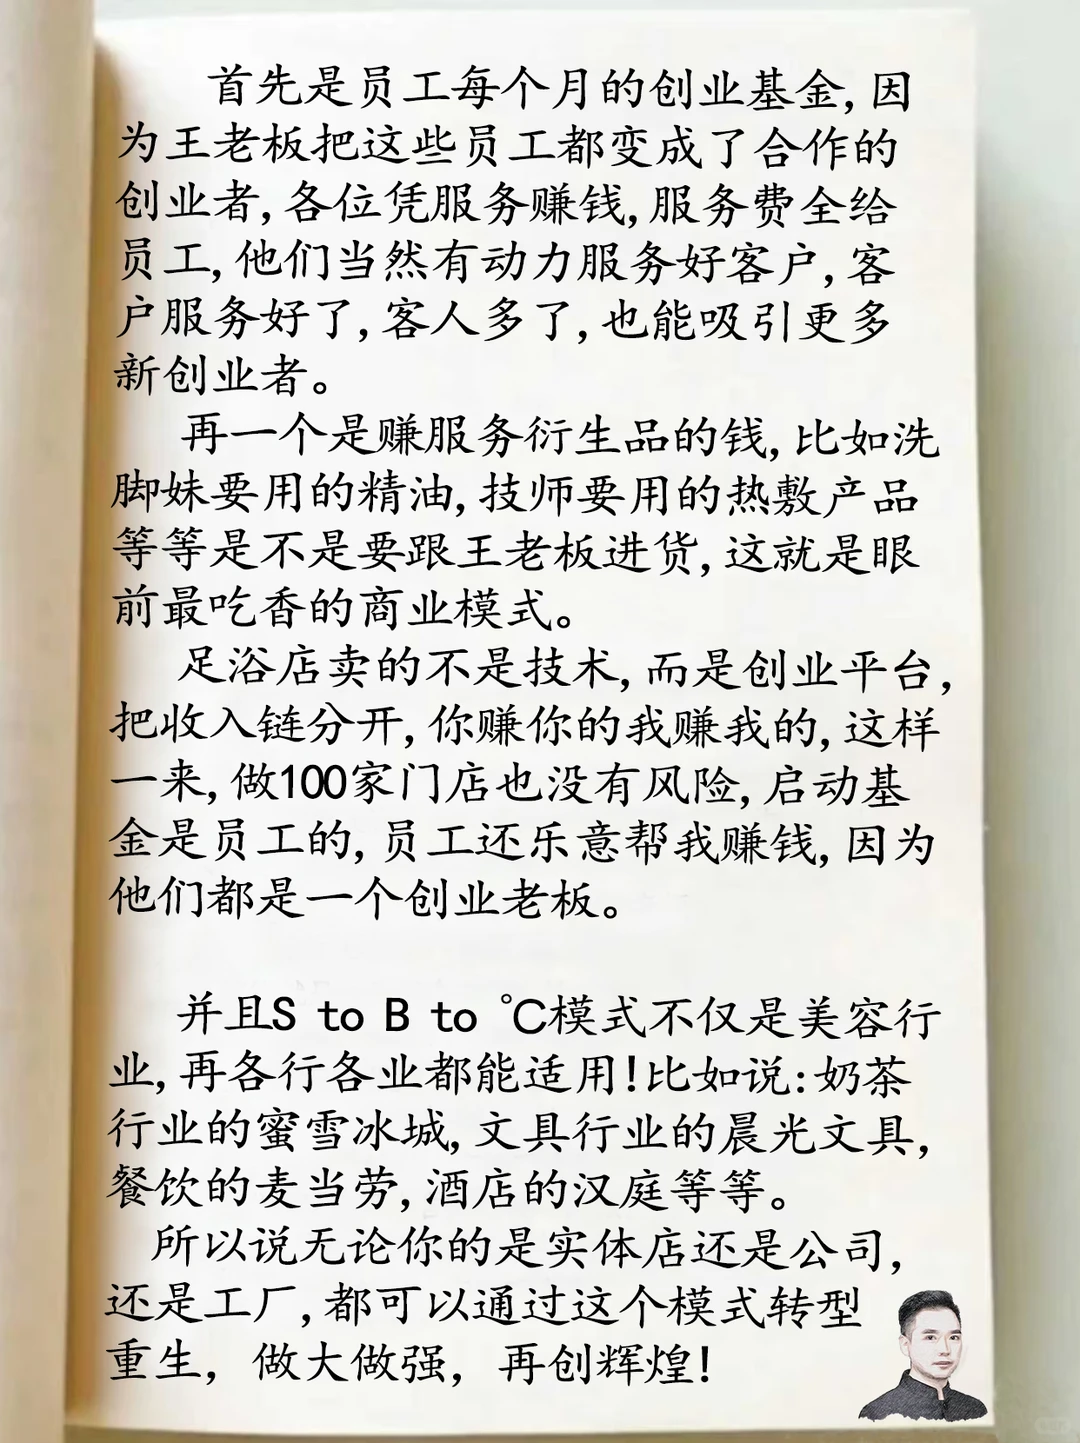 首先是员工每个月的创业基金,因
为王老板把这些员工都变成了合作的
创业者,各位凭服务赚钱,服务费全给
员工,他们当然有动力服务好客户,客
户服务好了,客人多了,也能吸引更多
新创业者。
再一个是赚服务衍生品的钱,比如洗
脚妹要用的精油,技师要用的热敷产品
等等是不是要跟王老板进货,这就是眼
前最吃香的商业模式。
足浴店卖的不是技术,而是创业平台,
把收入链分开,你赚你的我赚我的,这样
一来,做100家门店也没有风险,启动基
金是员工的,员工还乐意帮我赚钱,因为
他们都是一个创业老板。
并且S to B to ℃模式不仅是美容行
业,再各行各业都能适用!比如说:奶茶
行业的蜜雪冰城,文具行业的晨光文具,
餐饮的麦当劳,酒店的汉庭等等。
所以说无论你的是实体店还是公司,
还是工厂,都可以通过这个模式转型
重生，做大做强，再创辉煌!